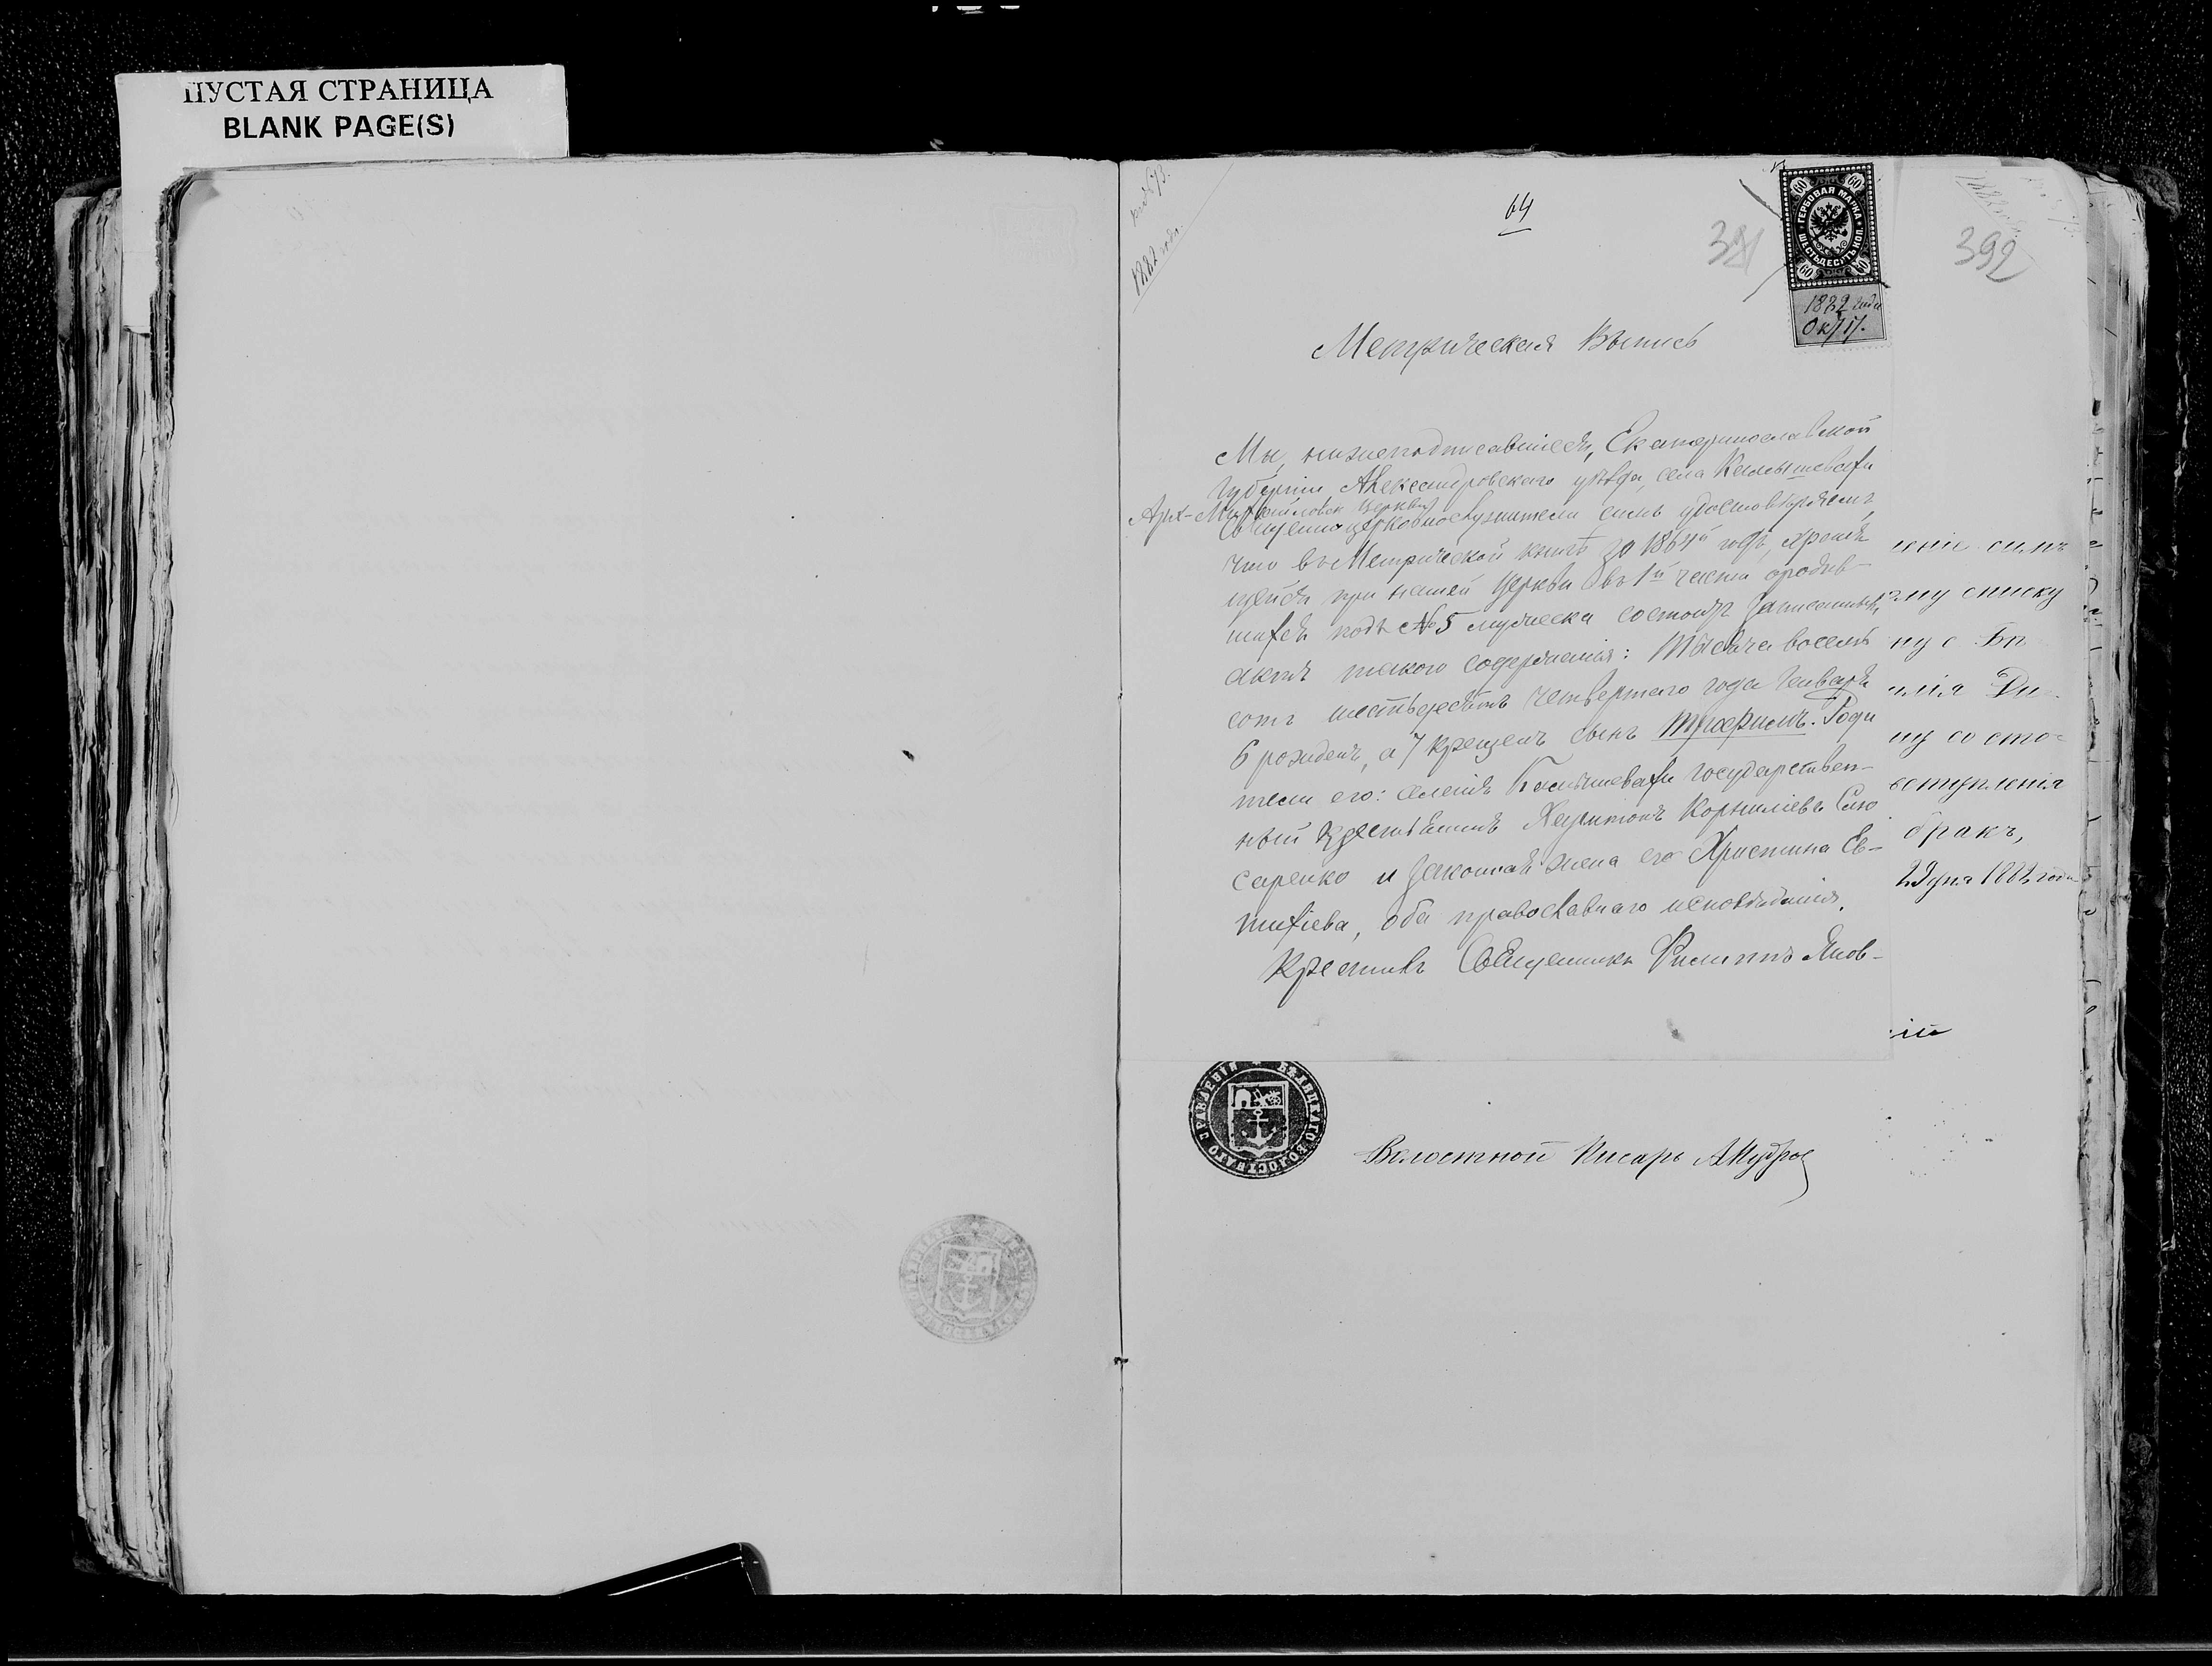 ПУСТАЯ СТРАНИЦА
BLANK PAGE(S)
1882 года
64
392
ГЕРБОВАЯ МАРКА
ШЕСТЬДЕСЯТЪ КОП.
60 60
60 60
1882 года
Окт 17.
Метрическая Выпись
Мы, нижеподписавшіеся, Екатеринославской
Губерніи Александровскаго уѣзда, села
Арх-Михайловск Церкви
Священноцерковнослужители симъ удостовѣряемъ,
что въ Метрической книгѣ за 1864й годъ, храня
щейся при нашей Церкви въ 1й части о родив-
шихся подъ №5 мужеска состоитъ записаннымъ
актъ такого содержанія: Тысяча восемь
сотъ шестьдесятъ четвертаго года Января
6 рожденъ, а 7 крещенъ сынъ Трифилъ. Роди
тели его: селенія государствен-
ный крестьянинъ Харитонъ Корниліевъ
саренко и законная жена его Христина Ев-
тихіева, оба православнаго исповѣданія.
Крестилъ Священникъ Филиппъ Янов-
еніе симъ
ому списку
ну о
ну состо-
вступленія
бракъ,
1882 года
ій
БѢЛЯЦКАГО ВОЛОСТНАГО ПРАВЛЕНІЯ
Волостной Писарь А Мудров